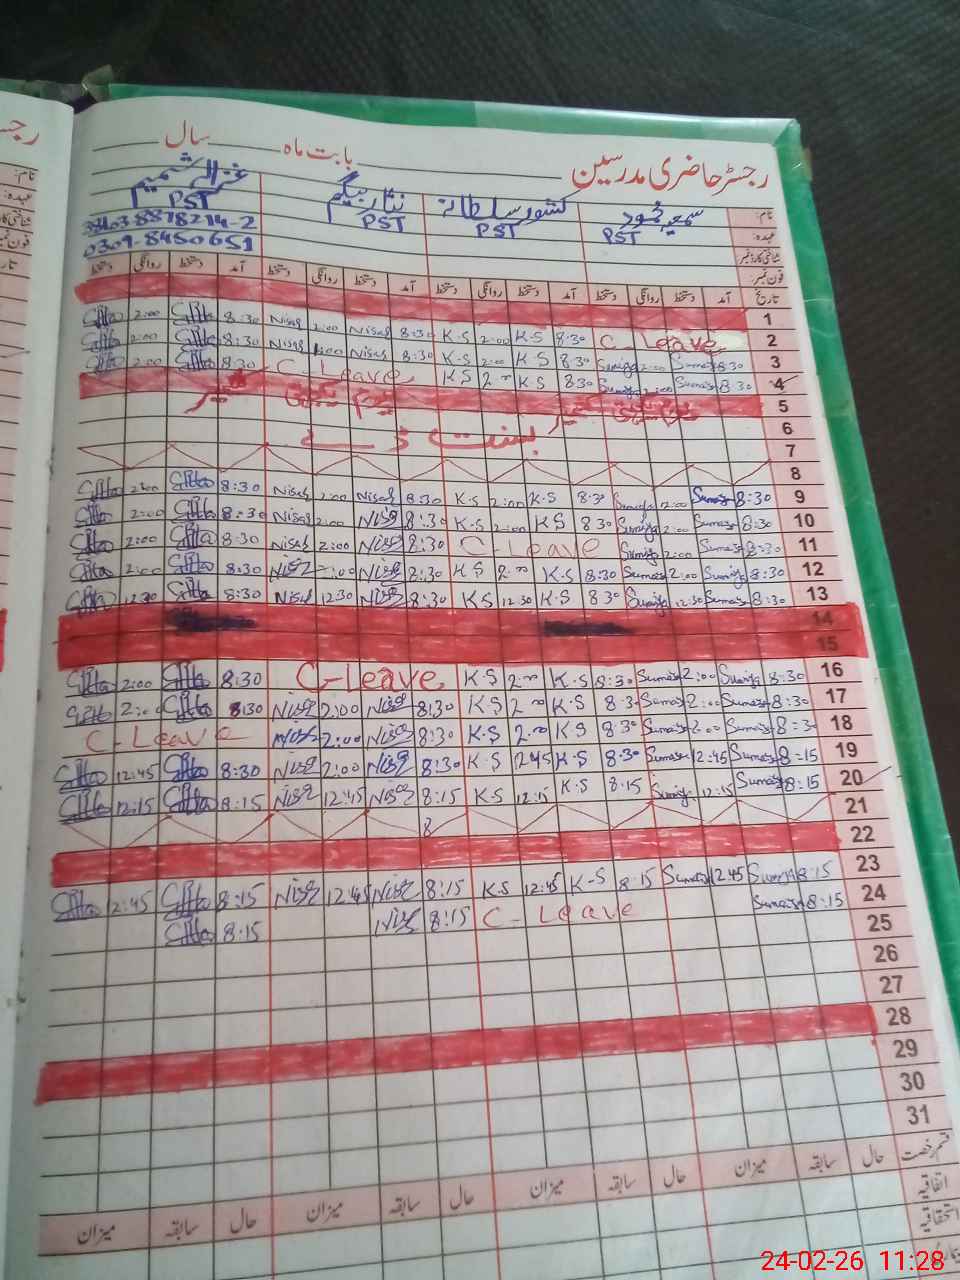 رجسٹر حاضری مدرسین بابت ماہ سال
نام: سمیعہ محمود کشور سلطانہ نثار بیگم غزالہ شمیم
عہدہ: PST PST PST PST
شناختی کارڈ نمبر:
فون نمبر: 0309-8450651
تاریخ آمد دستخط روانگی دستخط آمد دستخط روانگی دستخط آمد دستخط روانگی دستخط آمد دستخط روانگی دستخط
1
2:00 8:30 Nisar 2:00 Nisar 8:30 K.S 2:00 K.S 8:30 C-Leave 2
2:00 8:30 Nisar 2:00 Nisar 8:30 K.S 2:00 K.S 8:30 Sumaiya 2:00 Sumaiya 8:30 3
2:00 8:30 C-Leave K.S 2:00 K.S 8:30 Sumaiya 2:00 Sumaiya 8:30 4
یوم یکجہتی کشمیر یوم یکجہتی کشمیر 5
6
بسنت ڈے 7
8
2:00 8:30 Nisar 2:00 Nisar 8:30 K.S 2:00 K.S 8:30 Sumaiya 2:00 Sumaiya 8:30 9
2:00 8:30 Nisar 2:00 Nisar 8:30 K.S 2:00 K.S 8:30 Sumaiya 2:00 Sumaiya 8:30 10
2:00 8:30 Nisar 2:00 Nisar 8:30 C-Leave Sumaiya 2:00 Sumaiya 8:30 11
2:00 8:30 Nisar 2:00 Nisar 8:30 K.S 2:00 K.S 8:30 Sumaiya 2:00 Sumaiya 8:30 12
12:30 8:30 Nisar 12:30 Nisar 8:30 K.S 12:30 K.S 8:30 Sumaiya 12:30 Sumaiya 8:30 13
14
15
2:00 8:30 C-Leave K.S 2:00 K.S 8:30 Sumaiya 2:00 Sumaiya 8:30 16
2:00 8:30 Nisar 2:00 Nisar 8:30 K.S 2:00 K.S 8:30 Sumaiya 2:00 Sumaiya 8:30 17
C-Leave Nisar 2:00 Nisar 8:30 K.S 2:00 K.S 8:30 Sumaiya 2:00 Sumaiya 8:30 18
12:45 8:30 Nisar 2:00 Nisar 8:30 K.S 2:45 K.S 8:30 Sumaiya 12:45 Sumaiya 8:15 19
12:15 8:15 Nisar 12:45 Nisar 8:15 K.S 12:15 K.S 8:15 Sumaiya 12:15 Sumaiya 8:15 20
8 21
22
23
12:45 8:15 Nisar 12:45 Nisar 8:15 K.S 12:45 K.S 8:15 Sumaiya 12:45 Sumaiya 8:15 24
8:15 Nisar 8:15 C-Leave Sumaiya 8:15 25
26
27
28
29
30
31
قسم رخصت حال سابقہ میزان حال سابقہ میزان حال سابقہ میزان حال سابقہ میزان
اتفاقیہ
استحقاقیہ
24-02-26 11:28